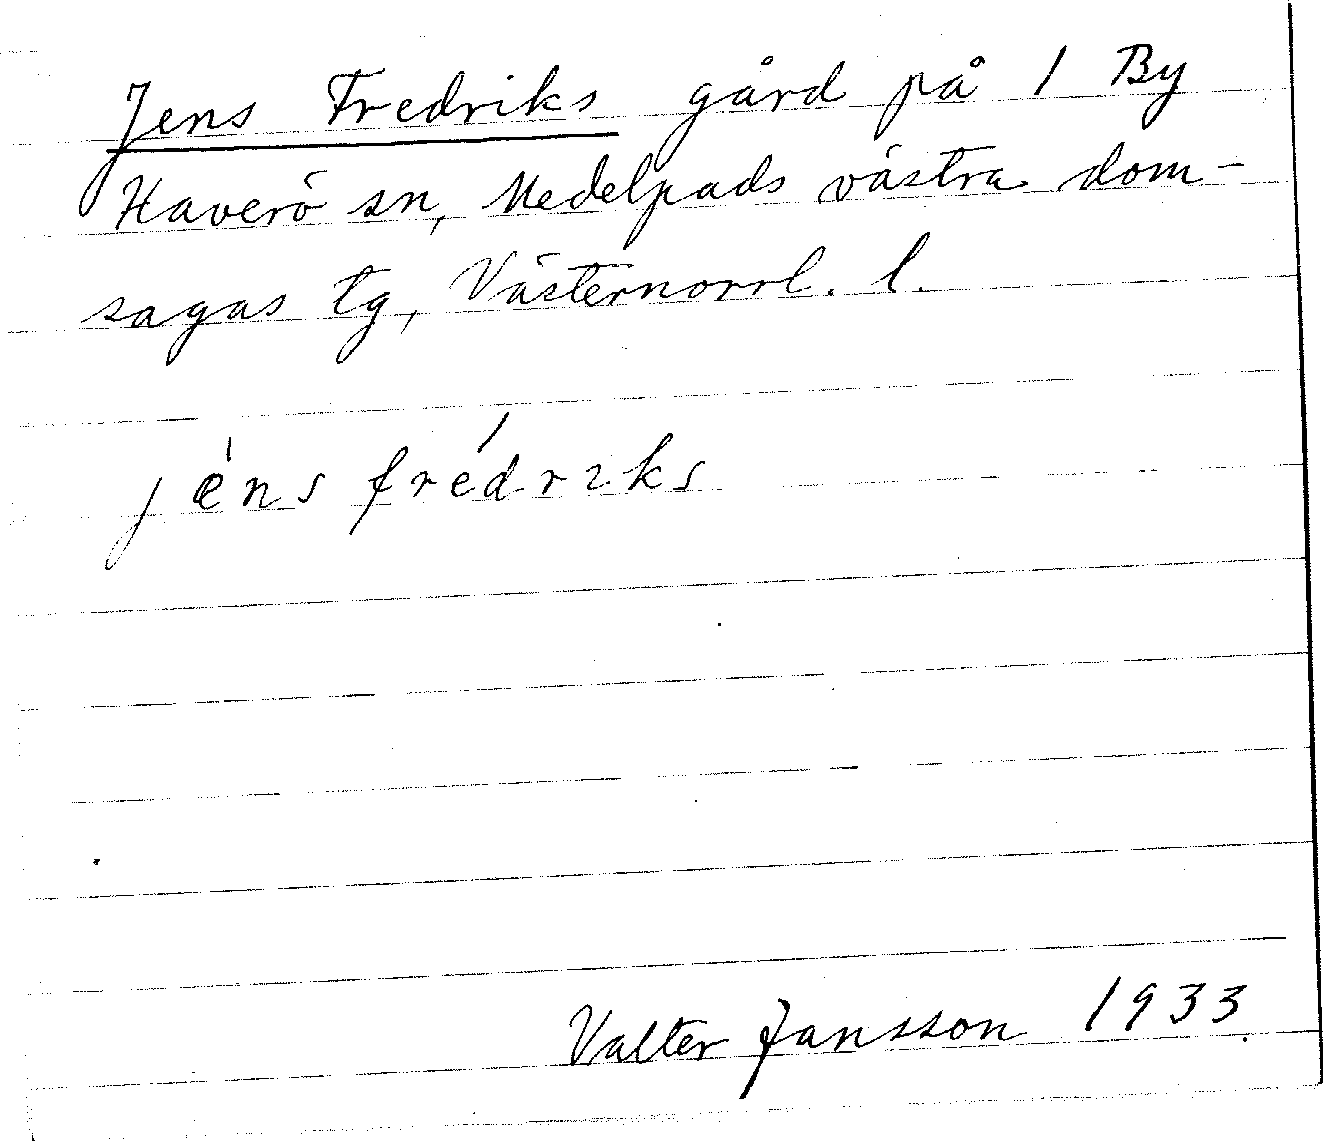 Jens Fredriks gård på 1 By
Haverö sn, Medelpads västra dom-
sagas tg, Västernorrl. l.
jéns frédrıks
Valter Jansson 1933.